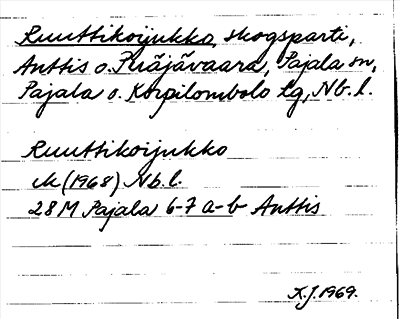 Ruuttikoijukko, skogsparti,
Anttis o. Peräjävaara, Pajala sn,
Pajala o. Korpilombolo tg, Nb. l.
Ruuttikoijukko
M (1968) Nb. l.
28 M Pajala 6-7 a-b Anttis
K.J. 1969.